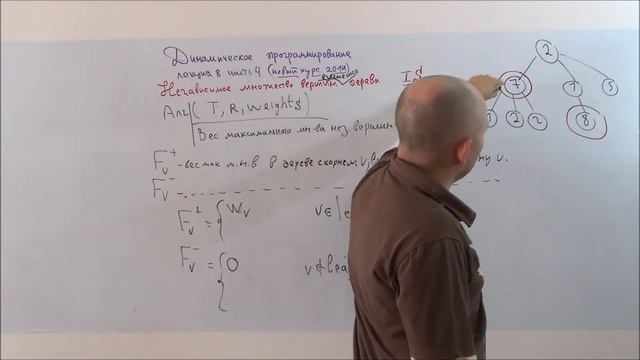 Динамическое программирование
лекция 8 часть 4 (новый курс 2014)
взвешенного
Независимое множество вершин дерева IS
Алг( T, R, Weights)
Вес максимального мн-ва нез. вершин
Fv+ - вес мак н.м.в в дереве с корнем v, ну v.
Fv-
Fv+ = { Wv v∈
Fv- = { 0 v∉lea
2
7 7 5
1 2 2 8